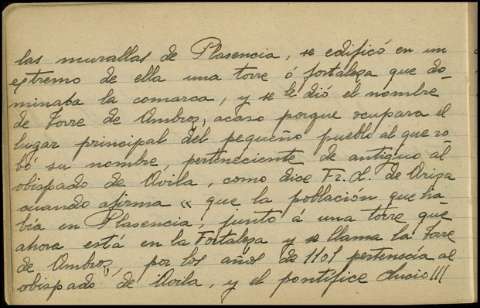 las murallas de Plasencia, se edificó en un
extremo de ella una torre ó fortaleza que do-
minaba la comarca, y se le dió el nombre
de Torre de Ambroz, acaso porque ocupara el
lugar principal del pequeño pueblo al que ro-
bó su nombre, perteneciente de antiguo al
obispado de Avila, como dice Fr. A. de Ariza
cuando afirma « que la población que ha-
bía en Plasencia, junto á una torre que
ahora está en la Fortaleza y se llama la Torre
de Ambroz, por los años de 1101 pertenecía al
obispado de Avila, y el pontífice Lucio III